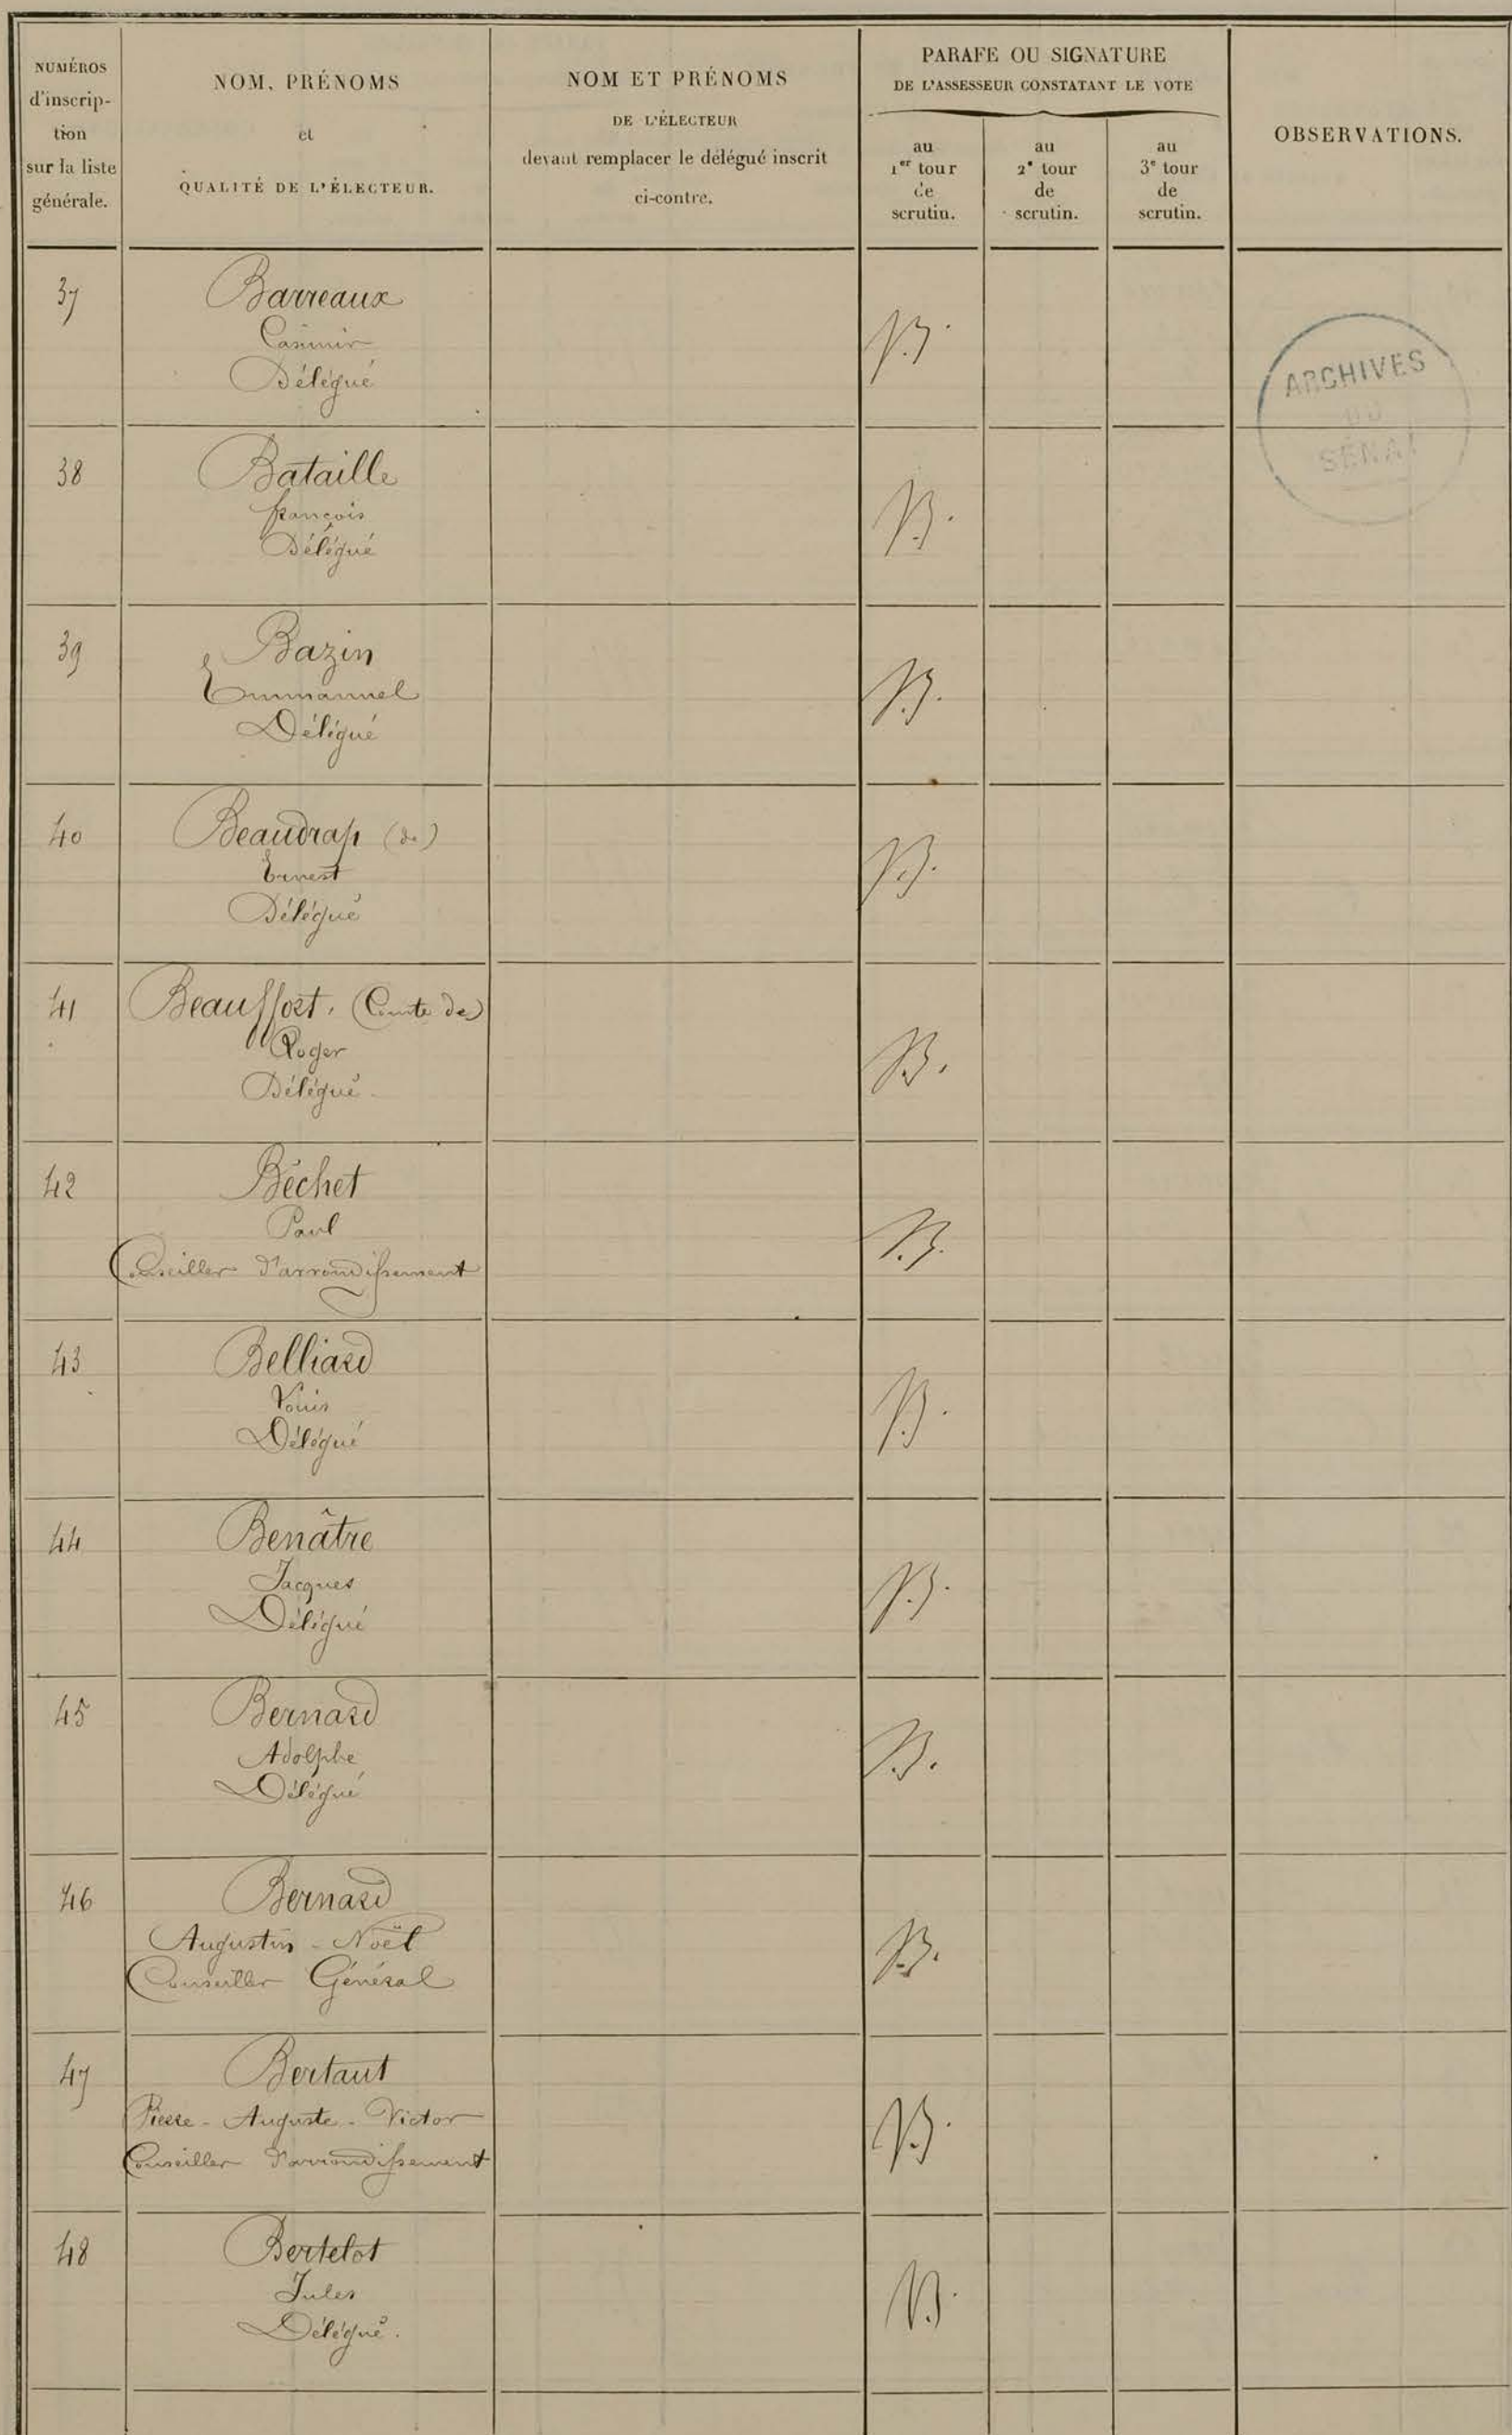 NUMÉROS
d'inscrip-
tion
sur la liste
générale.
NOM, PRÉNOMS
et
QUALITÉ DE L'ÉLECTEUR.
NOM ET PRÉNOMS
DE L'ÉLECTEUR
devant remplacer le délégué inscrit
ci-contre.
PARAFE OU SIGNATURE
DE L'ASSESSEUR CONSTATANT LE VOTE
au
1er tour
de
scrutin.
au
2e tour
de
scrutin.
au
3e tour
de
scrutin.
OBSERVATIONS.
ARCHIVES
DU
SÉNAT
37
Barreaux
Casimir
Délégué
B.
38
Bataille
françois
Délégué
B.
39
Bazin
Emmanuel
Délégué
B.
40
Beaudrap (de)
Ernest
Délégué
B.
41
Beauffort, (Comte de)
Roger
Délégué
B.
42
Béchet
Paul
Conseiller d'arrondissement
B.
43
Belliard
Louis
Délégué
B.
44
Benâtre
Jacques
Délégué
B.
45
Bernard
Adolphe
Délégué
B.
46
Bernard
Augustin - Noël
Conseiller Général
B.
47
Bertaut
Pierre - Auguste - Victor
Conseiller d'arrondissement
B.
48
Bertelot
Jules
Délégué.
B.